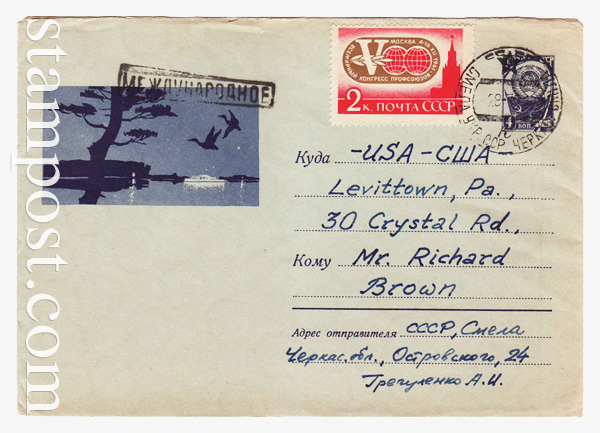 МЕЖДУНАРОДНОЕ
МОСКВА 4-16 XII 1961
ВСЕМИРНЫЙ КОНГРЕСС ПРОФСОЮЗОВ
V
2 К. ПОЧТА СССР
СМЕЛА
ССР ЧЕРК
коп
Куда -USA-США
Levittown, Pa.,
30 Crystal Rd.,
Кому Mr. Richard
Brown
Адрес отправителя СССР, Смела
Черкас. обл., Островского, 24
Трегуленко А.И.
stampost.com